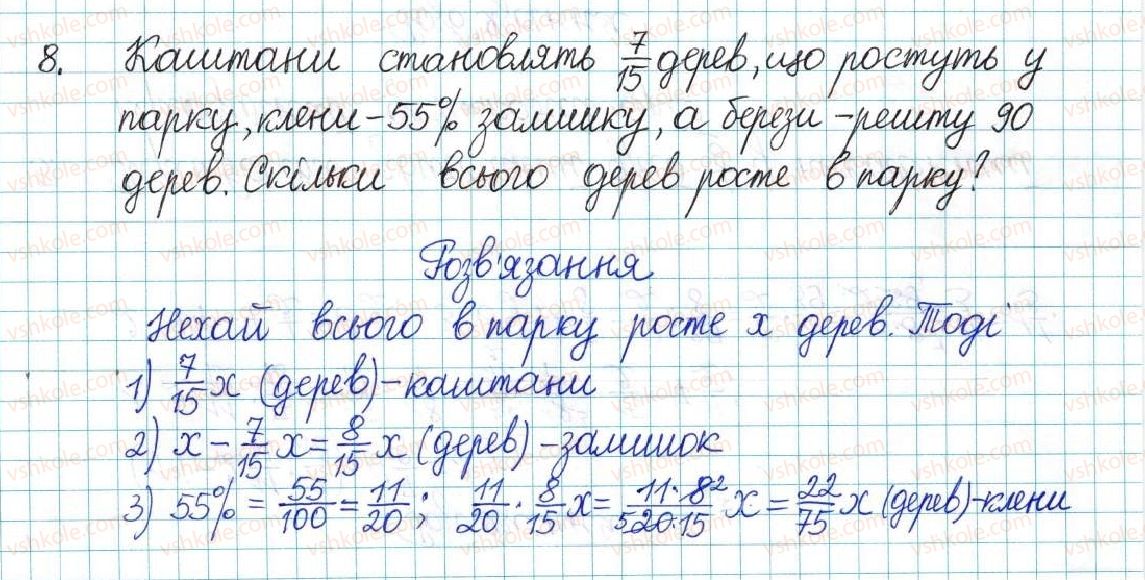 8. Каштани становлять 7/15 дерев, що ростуть у
парку, клени - 55% залишку, а берези - решту 90
дерев. Скільки всього дерев росте в парку?
Розв'язання
Нехай всього в парку росте x дерев. Тоді
1) 7/15 x (дерев) - каштани
2) x - 7/15 x = 8/15 x (дерев) - залишок
3) 55% = 55/100 = 11/20 ; 11/20 · 8/15 x = 11·8²/₅20·15 x = 22/75 x (дерев) - клени
vshkole.com